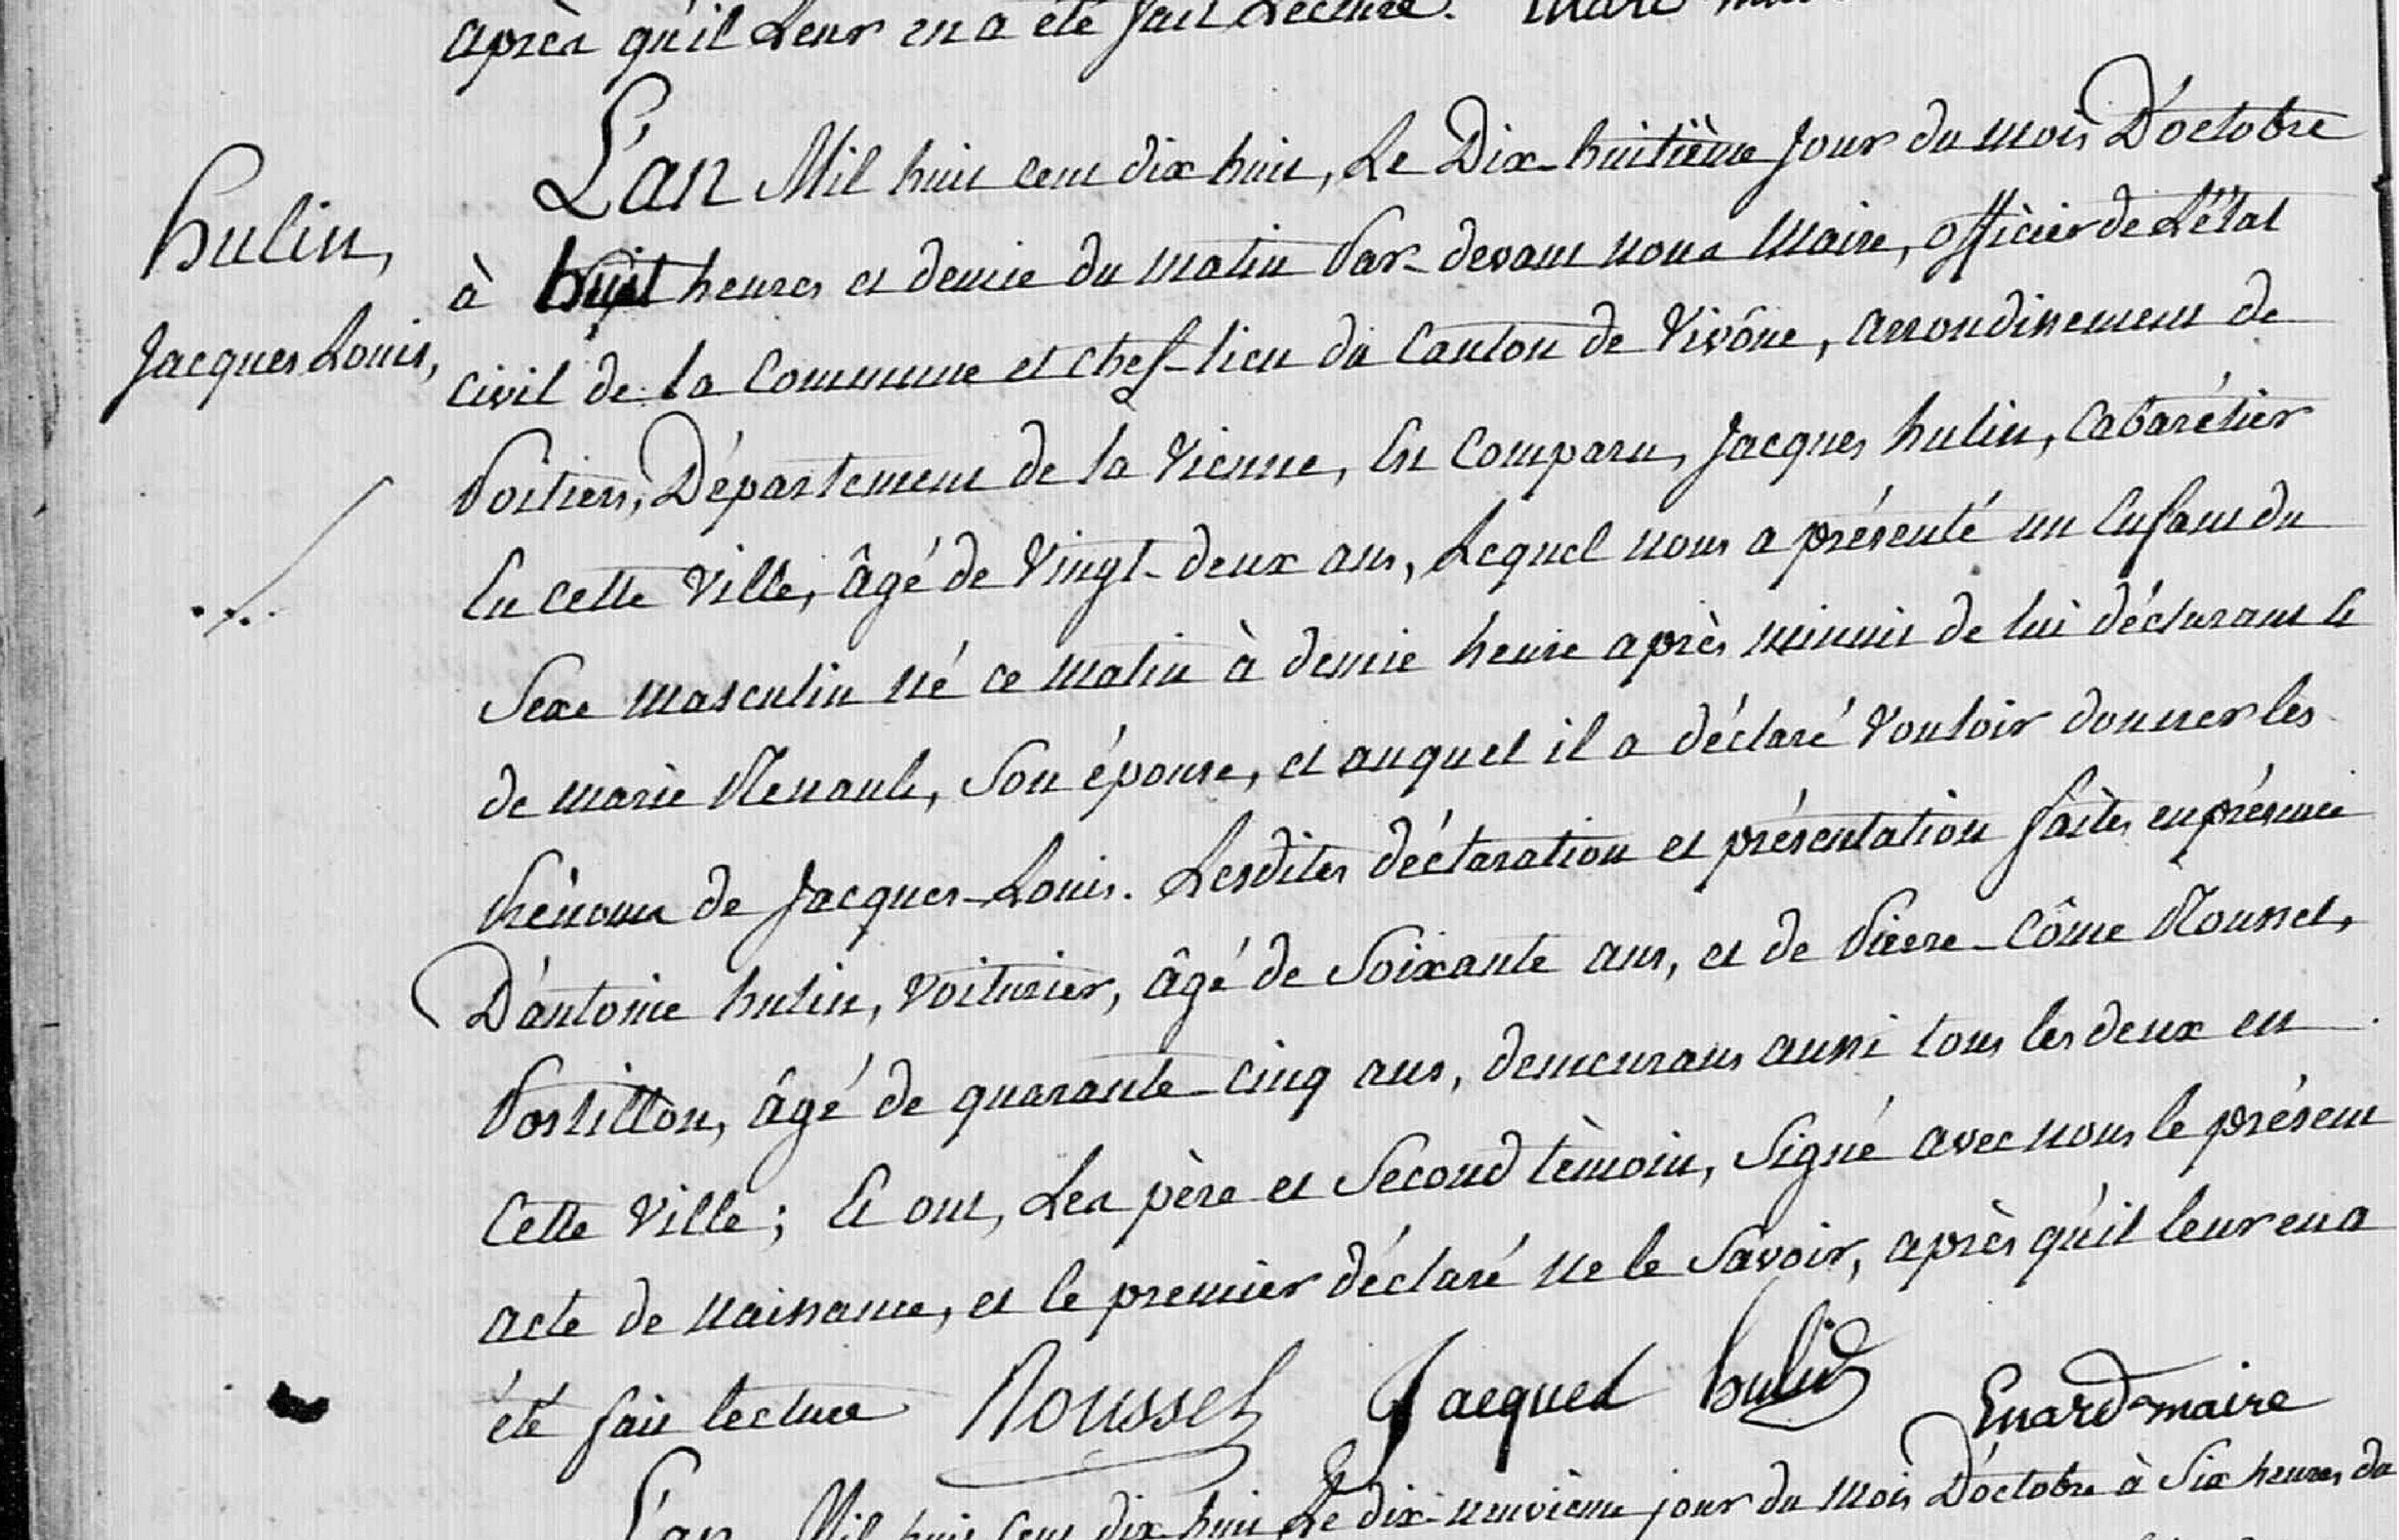 après qu'il Leur en a été fait Lecture.
L'an Mil huit cent dix huit, Le Dix-huitième Jour du mois D'octobre
hulin,
à huit heures et demie du matin Par-devant nous Maire, officier de L'état
Jacques Louis,
civil de la Commune et chef-lieu du Canton de Vivône, arrondissement de
Poitiers, Département de la Vienne, Est Comparu, Jacques hulin, Cabarétier
En cette Ville, âgé de Vingt-deux ans, Lequel nous a présenté un Enfant du
Sexe masculin né ce matin à demie heure après minuit de lui déclarant et
de marie Renault, Son épouse, et auquel il a déclaré Vouloir donner les
Prénoms de Jacques-Louis. Lesdites déclaration et présentation faites en présence
D'antoine hulin, Voiturier, âgé de Soixante ans, et de Pierre-Côme Rousset,
Postillon, âgé de quarante-cinq ans, demeurans aussi tous les deux en
Cette Ville; Et ont, Les père et Second témoin, Signé avec nous le présent
acte de naissance, et le premier déclaré ne le Savoir, après qu'il leur en a
été fait lecture Rousset Jacques hulin Enard maire
L'an Mil huit Cent dix huit Le dix-neuvième jour du Mois D'octobre à Six heures du